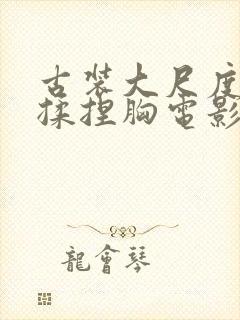 古装大尺度
揉捏胸电影
龍會琴